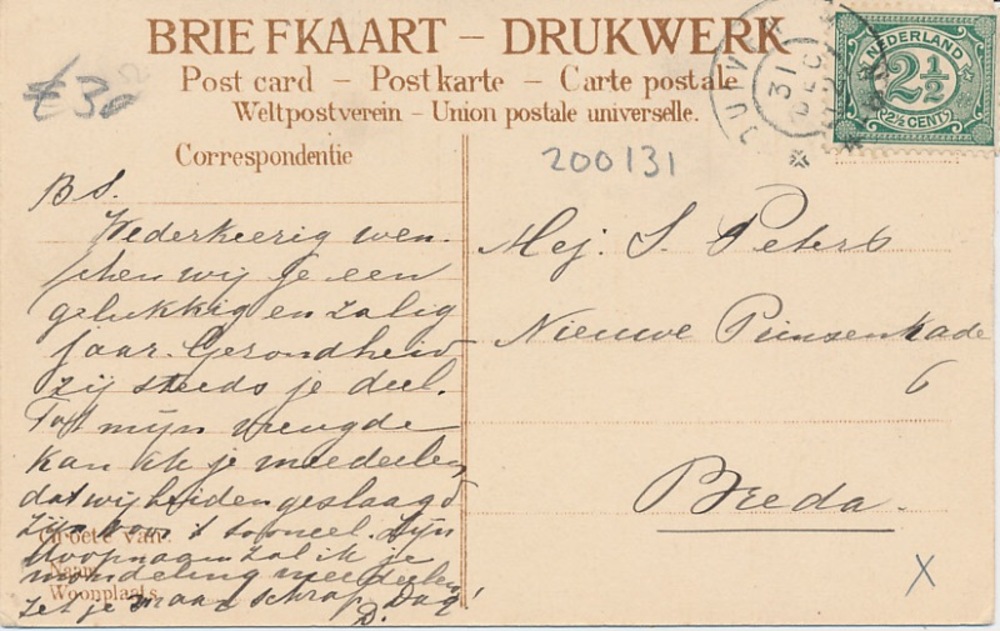 BRIEFKAART – DRUKWERK
Post card – Postkarte – Carte postale
Weltpostverein – Union postale universelle.
Correspondentie
€30
200131
31 DEC
NEDERLAND
2½
2½ CENT
B S.
Wederkeerig wen-
schen wij je een
gelukkig en zalig
jaar. Gezondheid
zij steeds je deel.
Tot mijn vreugde
kan ik je meedeelen
dat wij beiden geslaagd
zijn voor 't tooneel. Zijn
Doopnaam zal ik je
mondeling meedeelen
zet je maar schrap. Dag!
D.
Groete van:
Naam
Woonplaats
Mej. S. Peters
Nieuwe Prinsenkade
6
Breda.
X